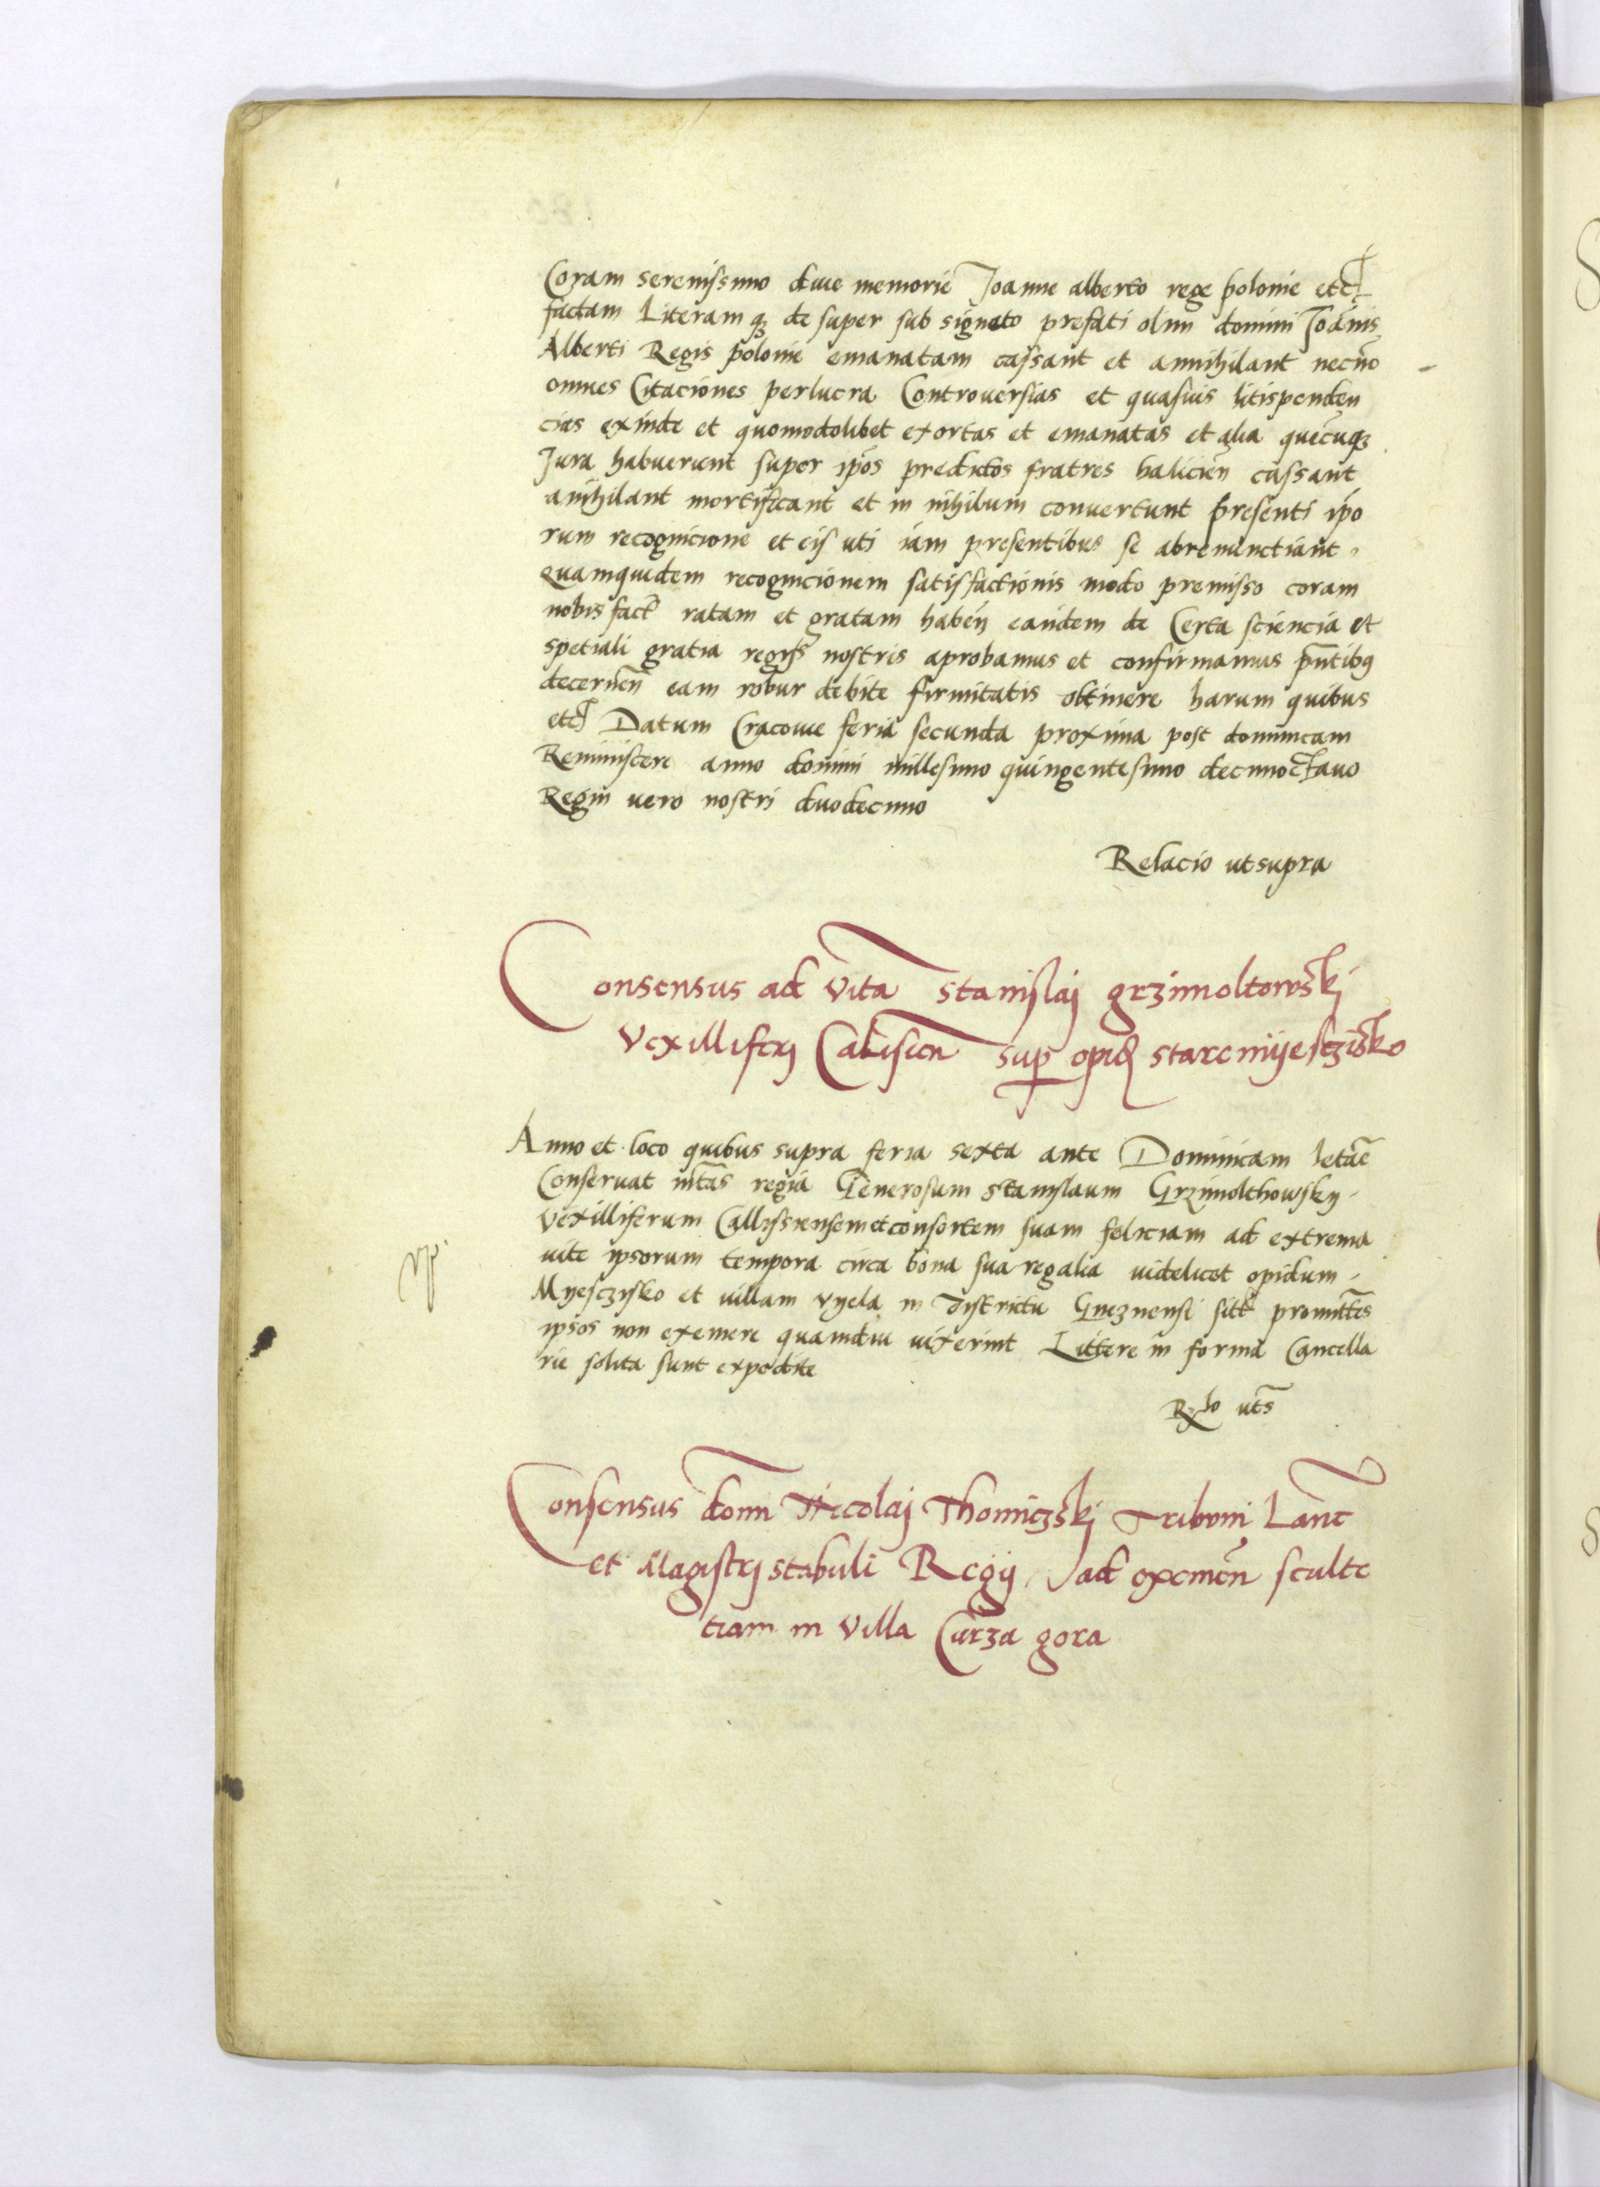 Coram serenissimo dive memorie Joanne alberto rege polonie etc
factam Literamq3 de super sub signato prefati olim domini Joānis
Alberti Regis polonie emanatam cassant et annihilant necnō
omnes Citaciones perlucra Controversias et quasvis litispenden
cias exinde et quomodolibet exortas et emanatas et alia quecūq3
Jura habuerunt super ipōs predictos fratres halicien̄ cassant
anihilant mortificant et in nihilum convertunt presenti ipō
rum recognicione et eis uti iam presentibus se abrenunctiant.
quamquidem recognicionem satisfactionis modo premisso coram
nobis fact̄ ratam et gratam habeń eandem de Certa sciencia et
spetiali gratia regijs nostris aprobamus et confirmamus p̄ntibq
decernen̄ eam robur debite firmitatis obtinere harum quibus
etc Datum Cracovie feria secunda proxima post dominicam
Reminiscere anno domini millesimo quingentesimo decimoctavo
Regni vero nostri duodecimo
Relacio ut supra
Consensus ad vitā Stanislaj grzimoltowskj
Vexilliferj Calisien̄ sup opid starc mijesczisko
Anno et loco quibus supra feria sexta ante Dominicam letāe
Conservat m̄tas regia Generosum Stanislaum Grzimolthowskij
Vexilliferum Callissiensem et consortem suam feliciam ad extrema
vite ipsorum tempora circa bona sua regalia videlicet opidum
Myesczysko et villam vyela in districtu Gneznensi sitt promitt̄es
ipsos non exemere quamdiu vixerint Littere in forma Cancella
rie solita sunt expedite
Rlo ut s̄
Consensus dom̄ Nicolaj Thomiczskj Tribuni Lanc̄
et Magistrj stabuli Regij ad exemen̄ sculte
tiam in villa Curza gora